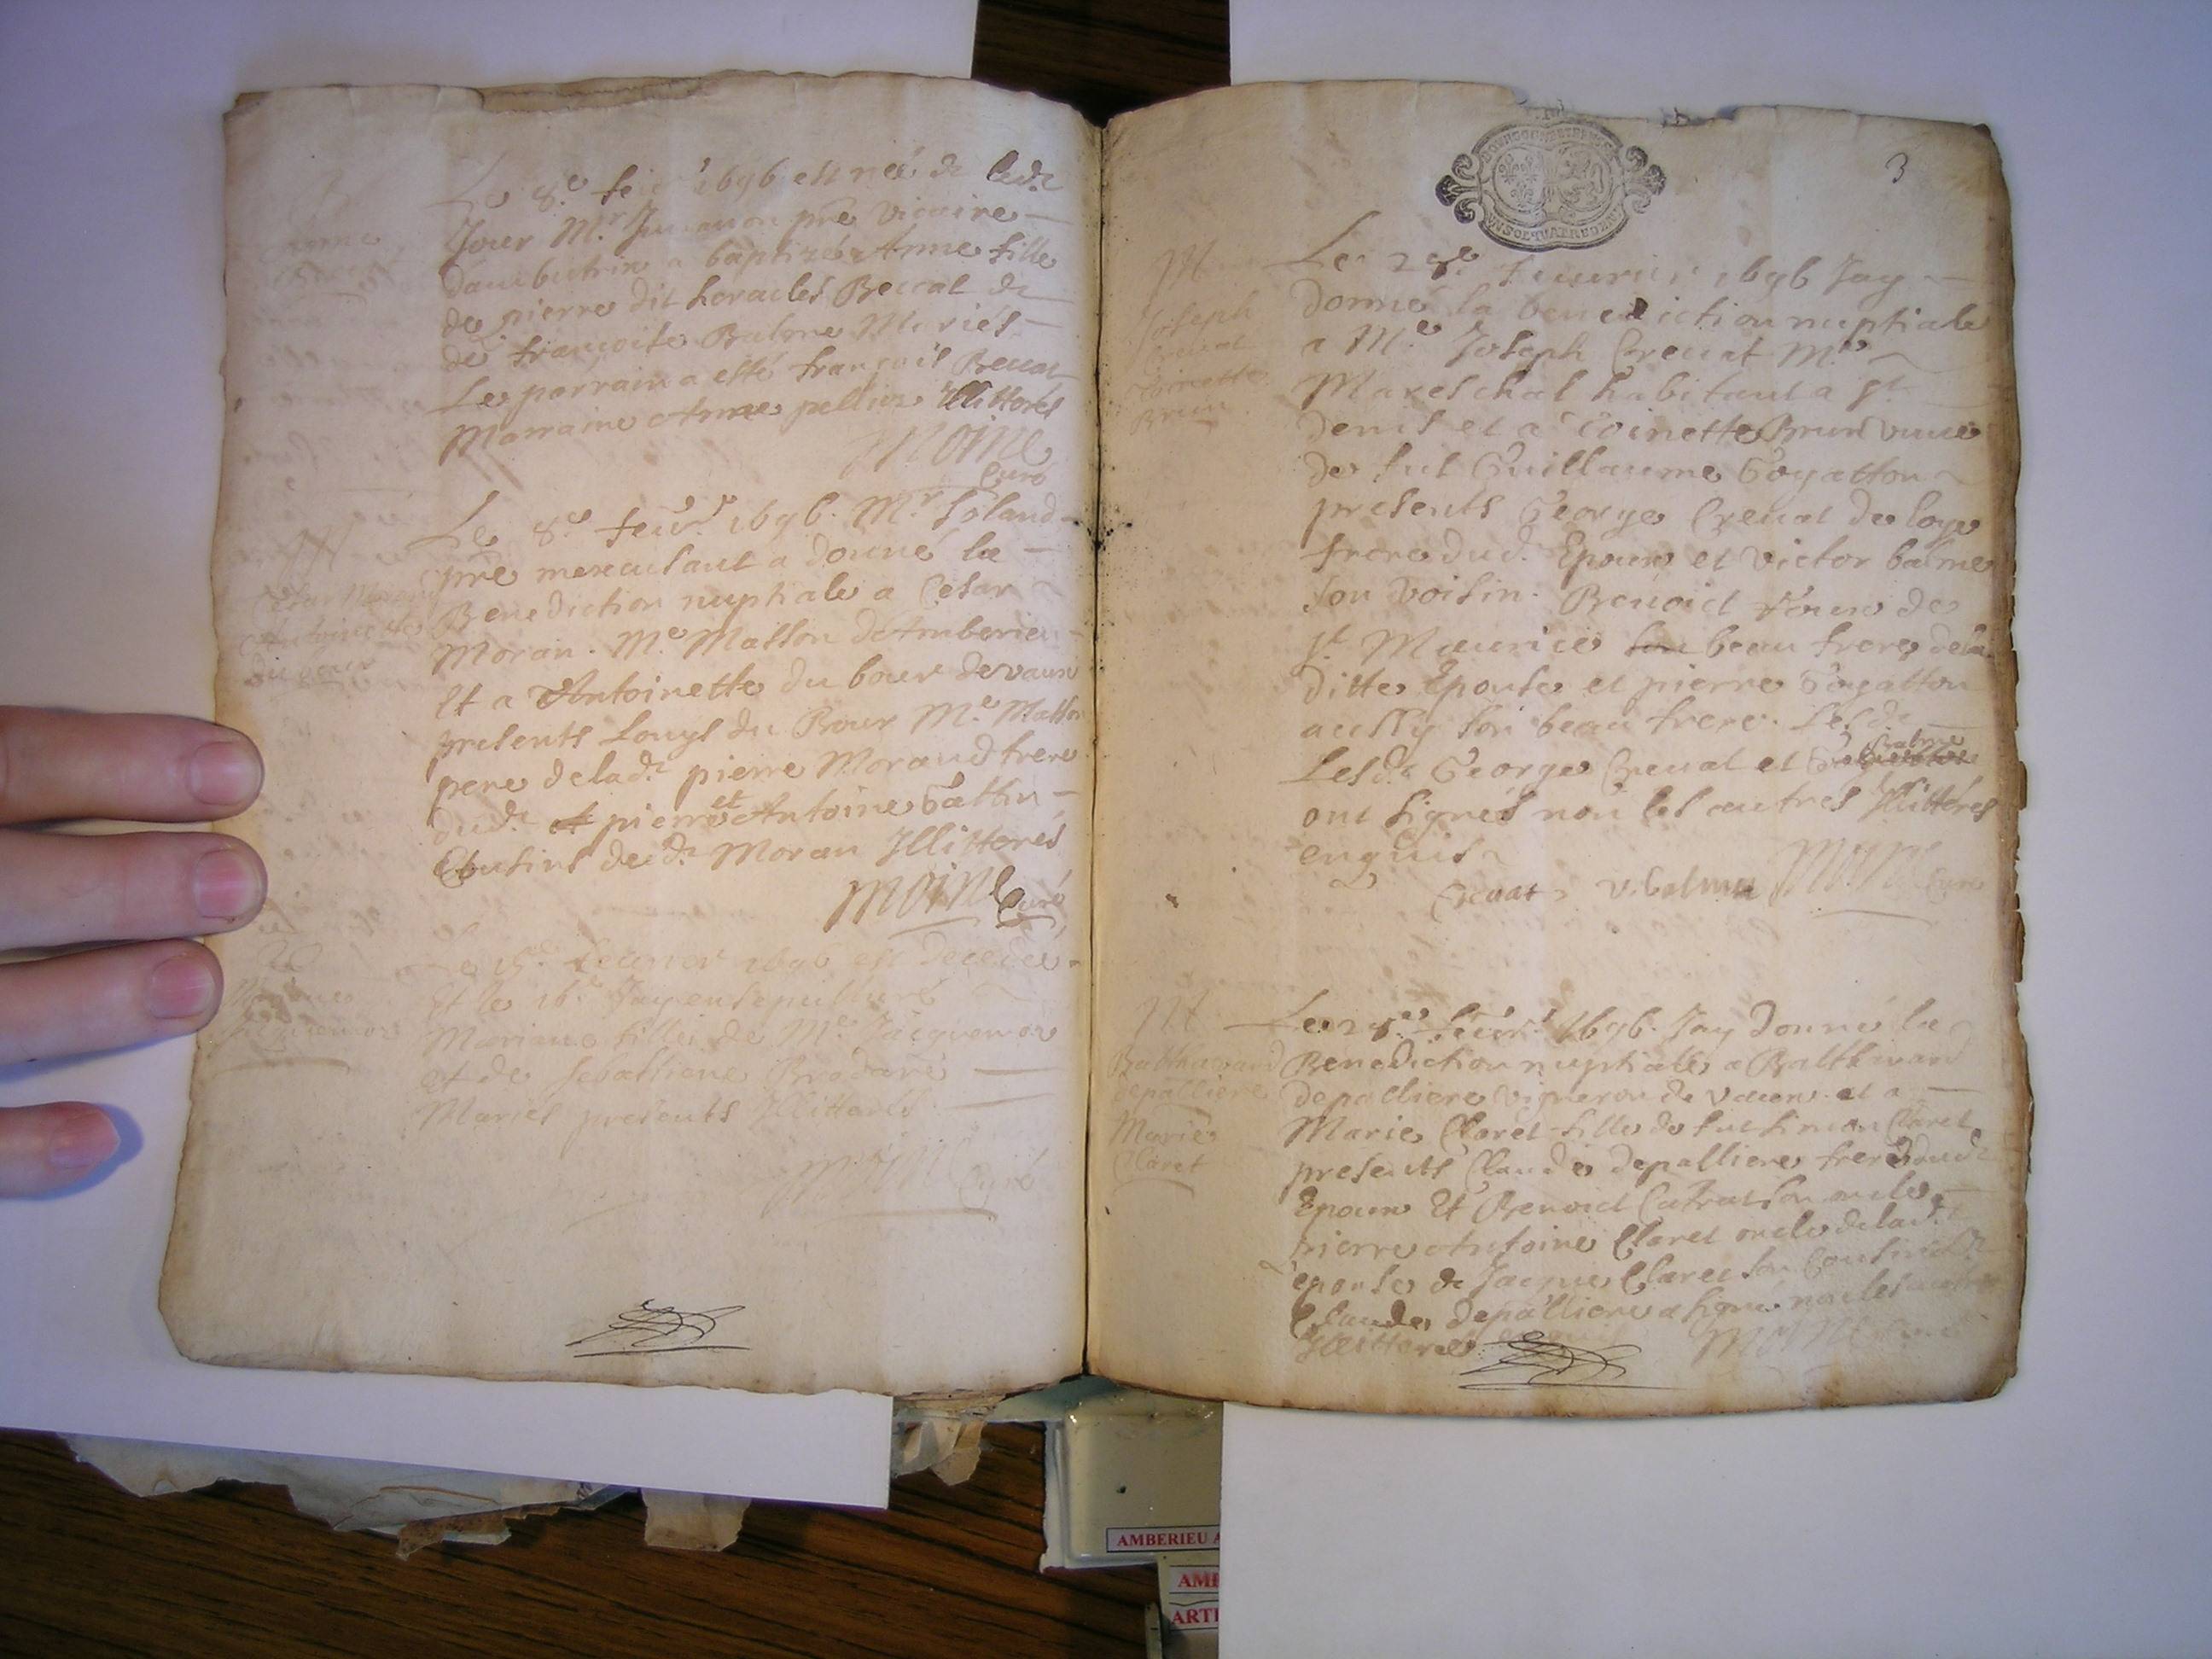 Le 8.e feur 1696 est neé & led.
Jour M.r pre vicaire
a baptizé Anne fille
de pierre dit heracles Beccat &
de françoise Balme Mariés
Le parrain a esté françois Beccat
Marraine Anne Illitterés
Moine
Curé
M
Cesar Moran
Antoinette
du bour
Le 8.e feur 1696. M.r
pre a donné la
Benediction nuptiale a Cesar
Moran. M.e Masson d'Amberieu
Et a Antoinette du bour devaux
presents Louys du Bour M.e Masson
pere delad. pierre Morand frere
dud. et pierre et Antoine
Cousins de d. Moran Illitterés
Moine Curé
Mariane
Jacquemoz
Le 15.e feurier 1696 est decedeé
Et le 16.e Jay ensepulturé
Mariane fille de M.e Jacquemoz
et de sebastiene
Mariés presents Illitterés
Moine Curé
3
M
Joseph
Creuat
Toinette
Brun
Le 28.e feurier 1696 Jay
donné la benediction nuptiale
a M.e Joseph Creuat M.e
Mareschal habitant a st
denis et a Toinette Brun vueue
de fut Guillaume Goyatton
presents George Creuat de loye
frere dud. Epoux et victor balme
son voisin. Benoict de
st Maurice son beau frere dela
ditte Epouse et pierre Goyatton
aussy son beau frere. Lesd.
Lesd. George Creuat et Balme
ont signés non les autres Illitterés
enquis
Creuat v. balme Moine Curé
M
Balthazard
depalliere
Marie
Claret
Le 28.e feur. 1696. Jay Donné la
Benediction nuptiale a Balthazard
depalliere vigneron de vaux et a
Marie Claret fille de fut simon Claret
presents Claude depalliere frere dud.
Epoux Et Benoict son oncle
pierre Antoine Claret oncle delad.
epouse & Jacque Claret son Cousin
Claude depalliere a signé non les autres
Illitterés enquis Moine Curé
AMBERIEU A
AMB
ARTE